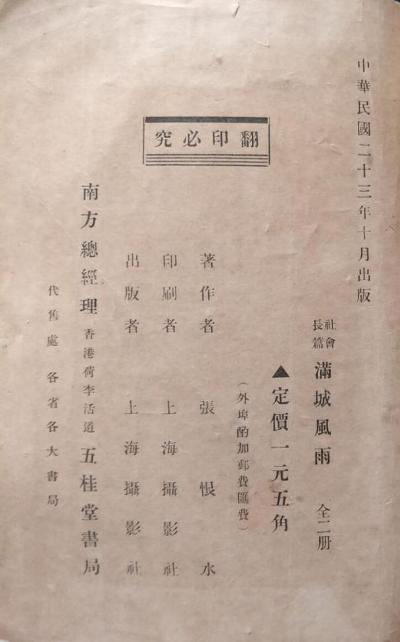 中華民國二十三年十月出版
社會長篇 滿城風雨 全二册
▲定價一元五角
（外埠酌加郵費匯費）
翻印必究
著作者 張恨水
印刷者 上海攝影社
出版者 上海攝影社
南方總經理 香港荷李活道 五桂堂書局
代售處 各省各大書局